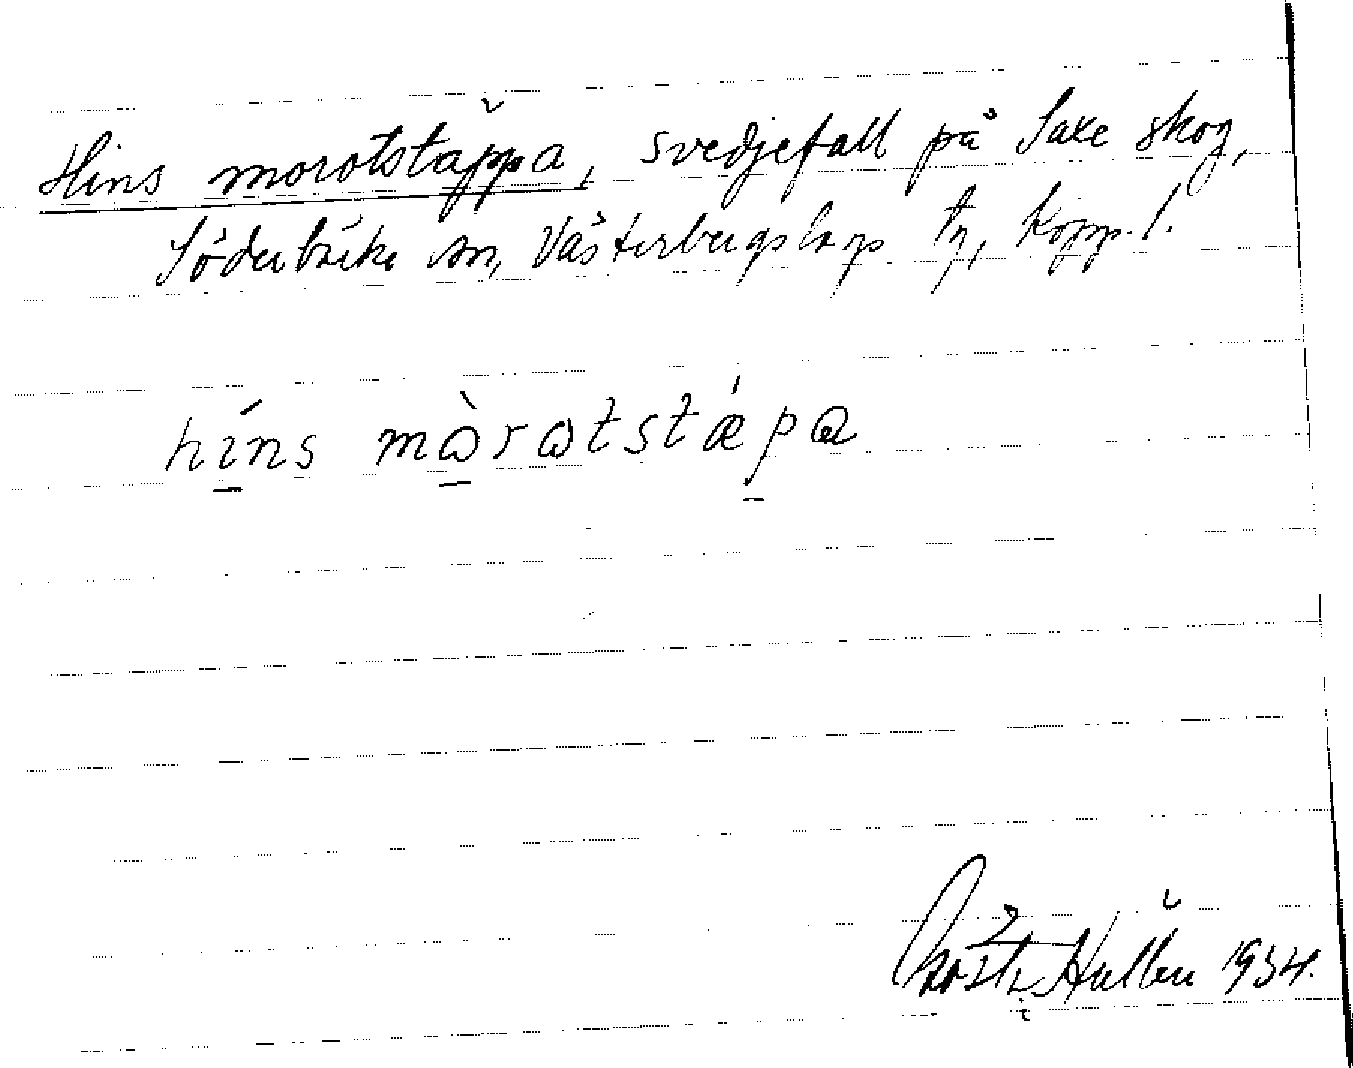 Hins morotstäppa, svedjefall på Saxe skog,
Söderbärke sn, Västerbergslags tg, Kopp. l.
híns mòrotstǽpa
Hallén 1934.